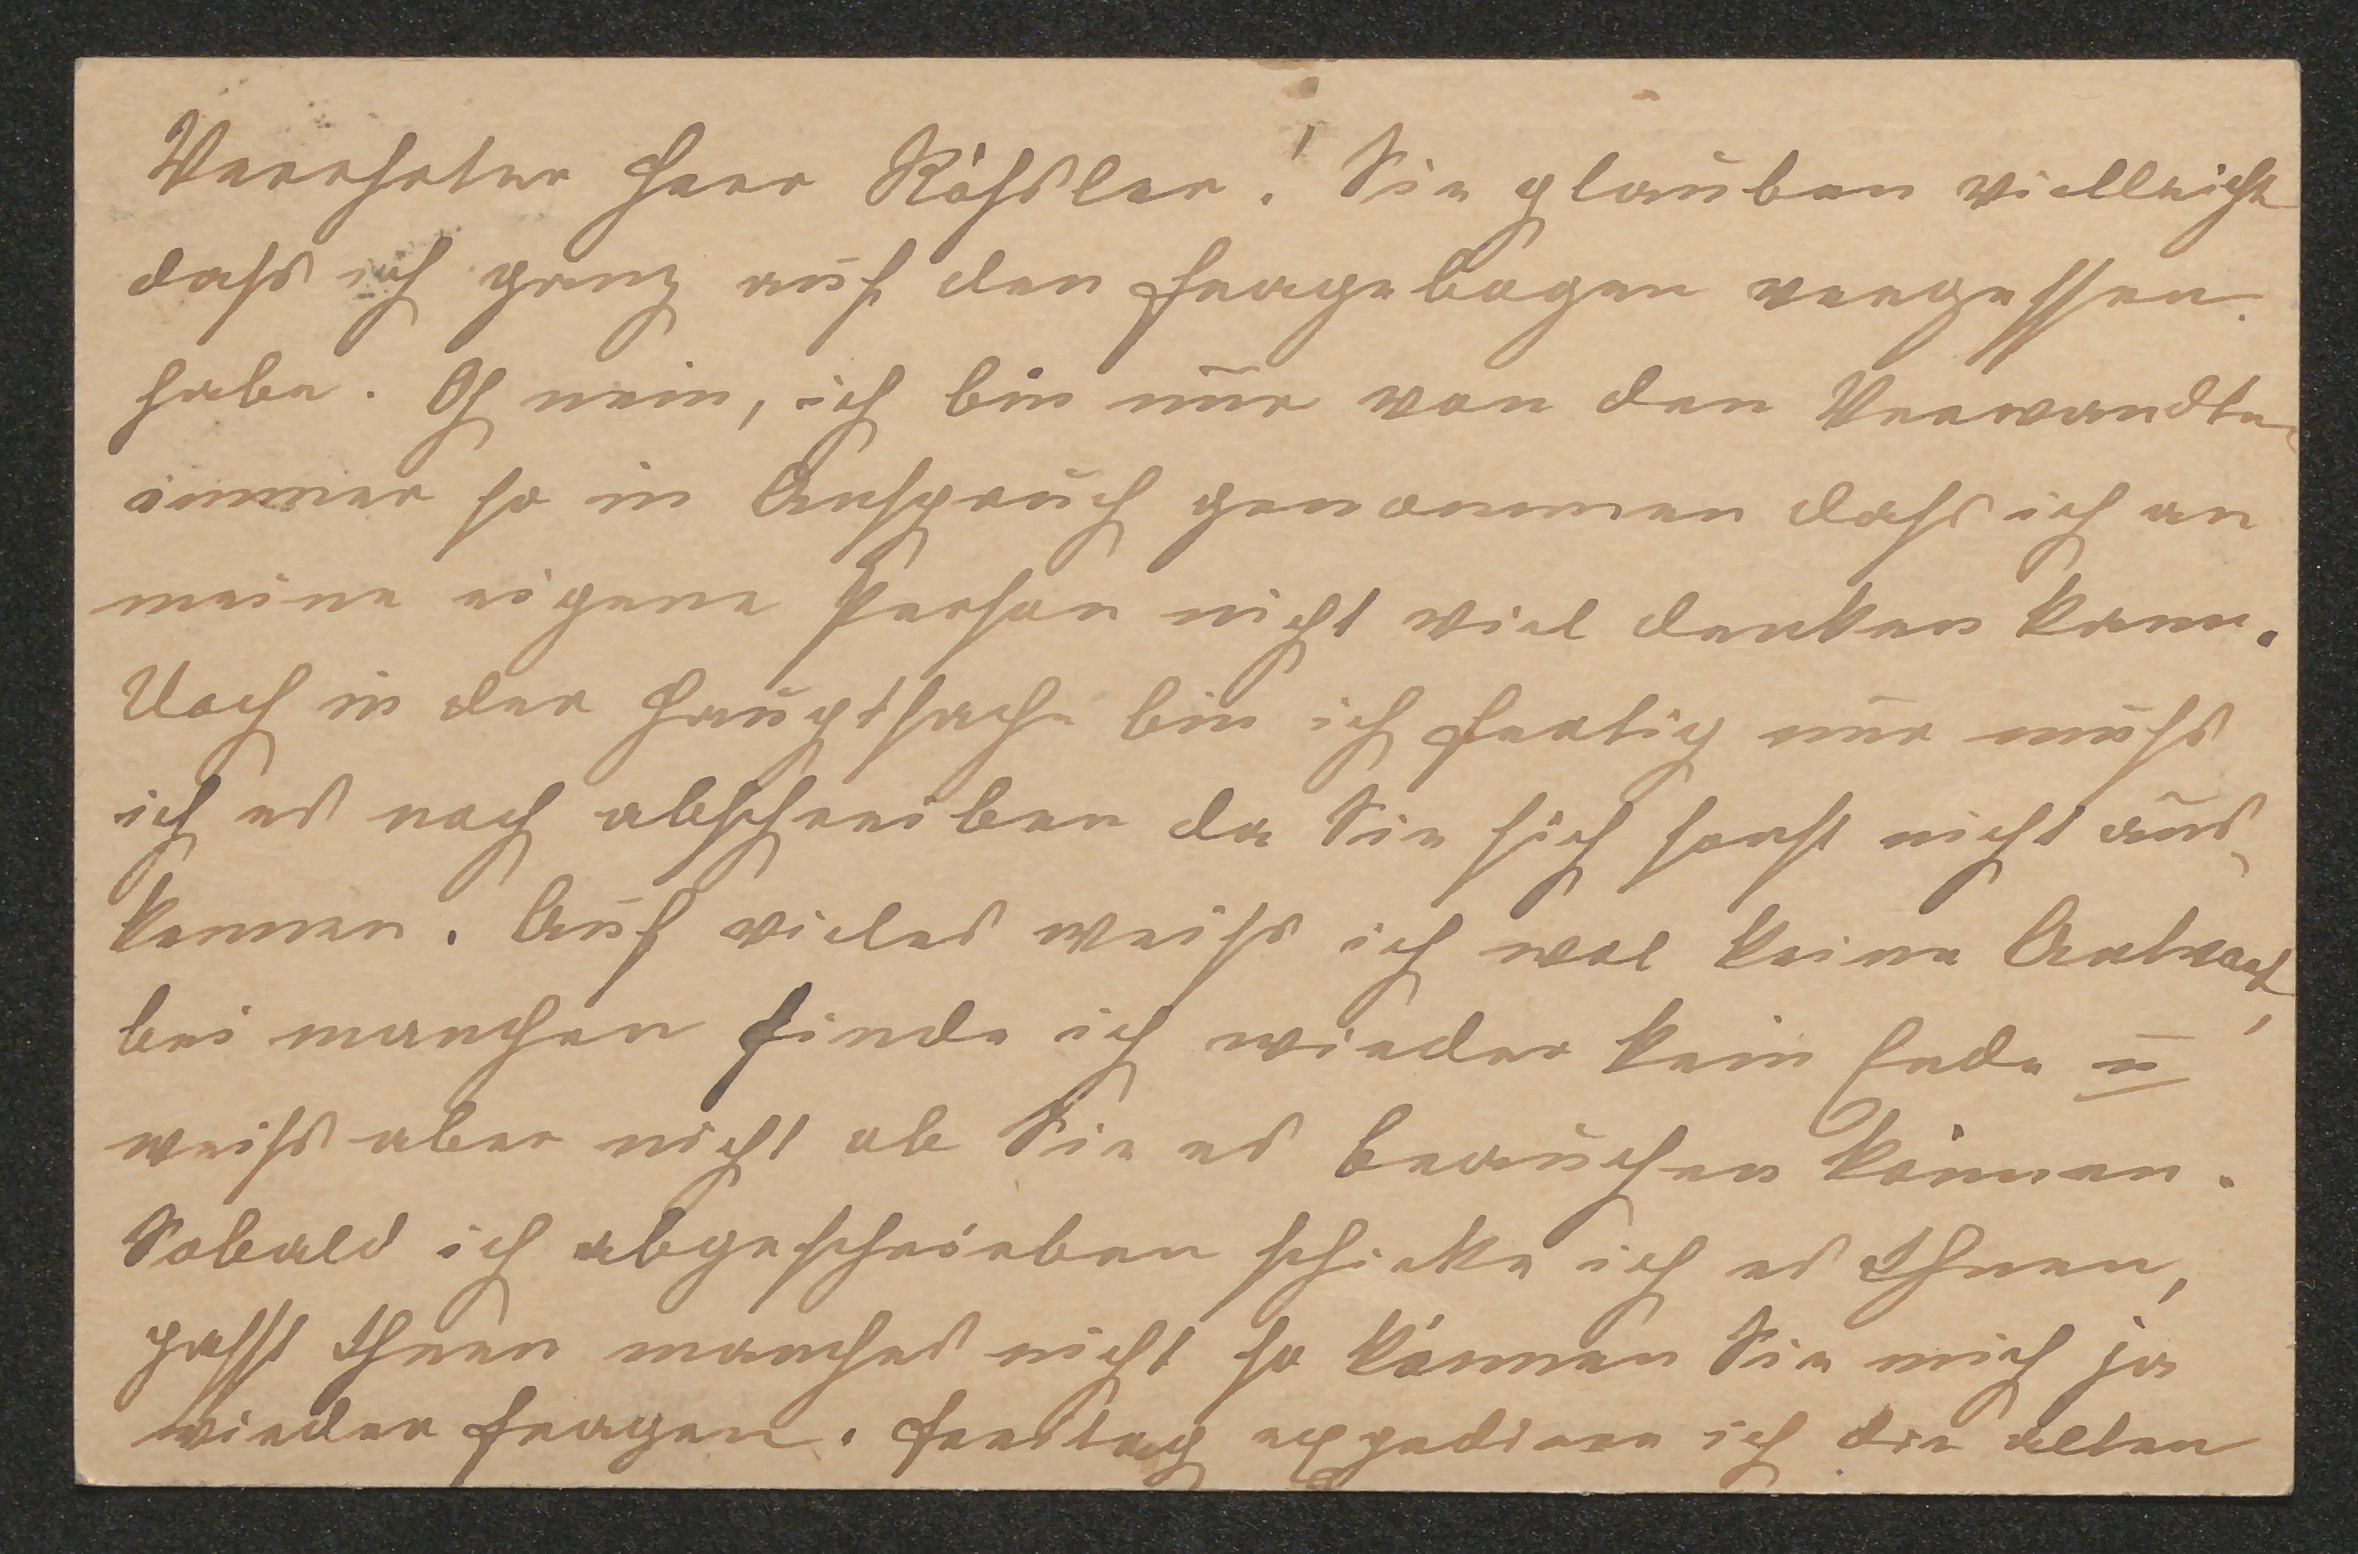 Verehrter Herr Rößler! Sie glauben vielleicht
daß ich ganz auf den Fragebogen vergessen
habe. Oh nein, ich bin nur von den Verwandten
immer so in Anspruch genommen daß ich an
meine eigene Person nicht viel denken kann.
Doch in der Hauptsache bin ich fertig nur muß
ich es noch abschreiben da Sie sich sonst nicht aus-
kennen. Auf vieles weiß ich wol keine Antwort,
bei manchen finde ich wieder kein Ende u
weiß aber nicht ob Sie es brauchen können.
Sobald ich abgeschrieben schicke ich es Ihnen,
passt Ihnen manches nicht so können Sie mich ja
wieder fragen. Freitag expediere ich die alten